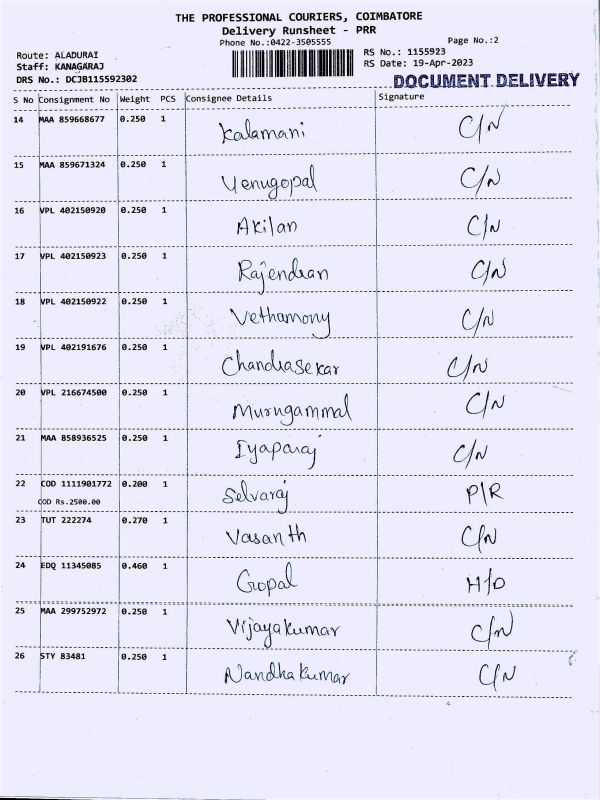 THE PROFESSIONAL COURIERS, COIMBATORE
Delivery Runsheet - PRR
Phone No.:0422-3505555 Page No.:2
Route: ALADURAI RS No.: 1155923
Staff: KANAGARAJ RS Date: 19-Apr-2023
DRS No.: DCJB115592302 DOCUMENT DELIVERY
S No Consignment No Weight PCS Consignee Details Signature
14 MAA 859668677 0.250 1 Kalamani C/N
15 MAA 859671324 0.250 1 Venugopal C/N
16 VPL 402150920 0.250 1 Akilan C/N
17 VPL 402150923 0.250 1 Rajendran C/N
18 VPL 402150922 0.250 1 Vethamony C/N
19 VPL 402191676 0.250 1 Chandrasekar C/N
20 VPL 216674500 0.250 1 Murugammal C/N
21 MAA 858936525 0.250 1 Iyaparaj C/N
22 COD 1111901772 0.200 1 Selvaraj P/R
COD Rs.2500.00
23 TUT 222274 0.270 1 Vasanth C/N
24 EDQ 11345085 0.460 1 Gopal H/O
25 MAA 299752972 0.250 1 Vijayakumar C/N
26 STY 83481 0.250 1 Nandhakumar C/N